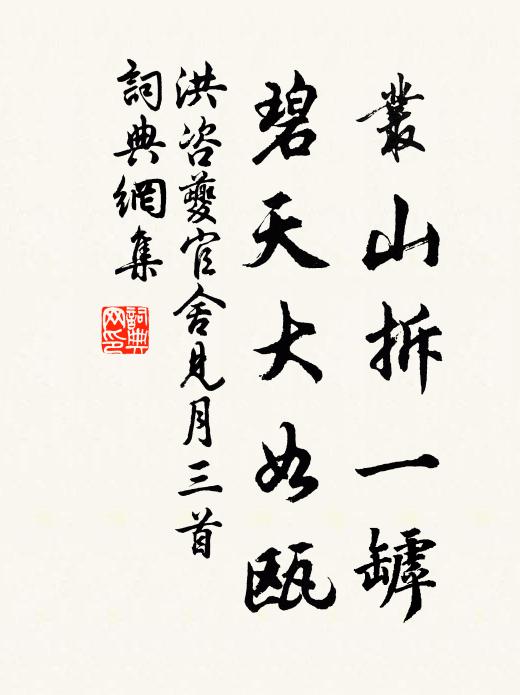 叢山拆一罅
碧天大如甌
洪咨夔官舍見月三首
詞典網集
詞典网印